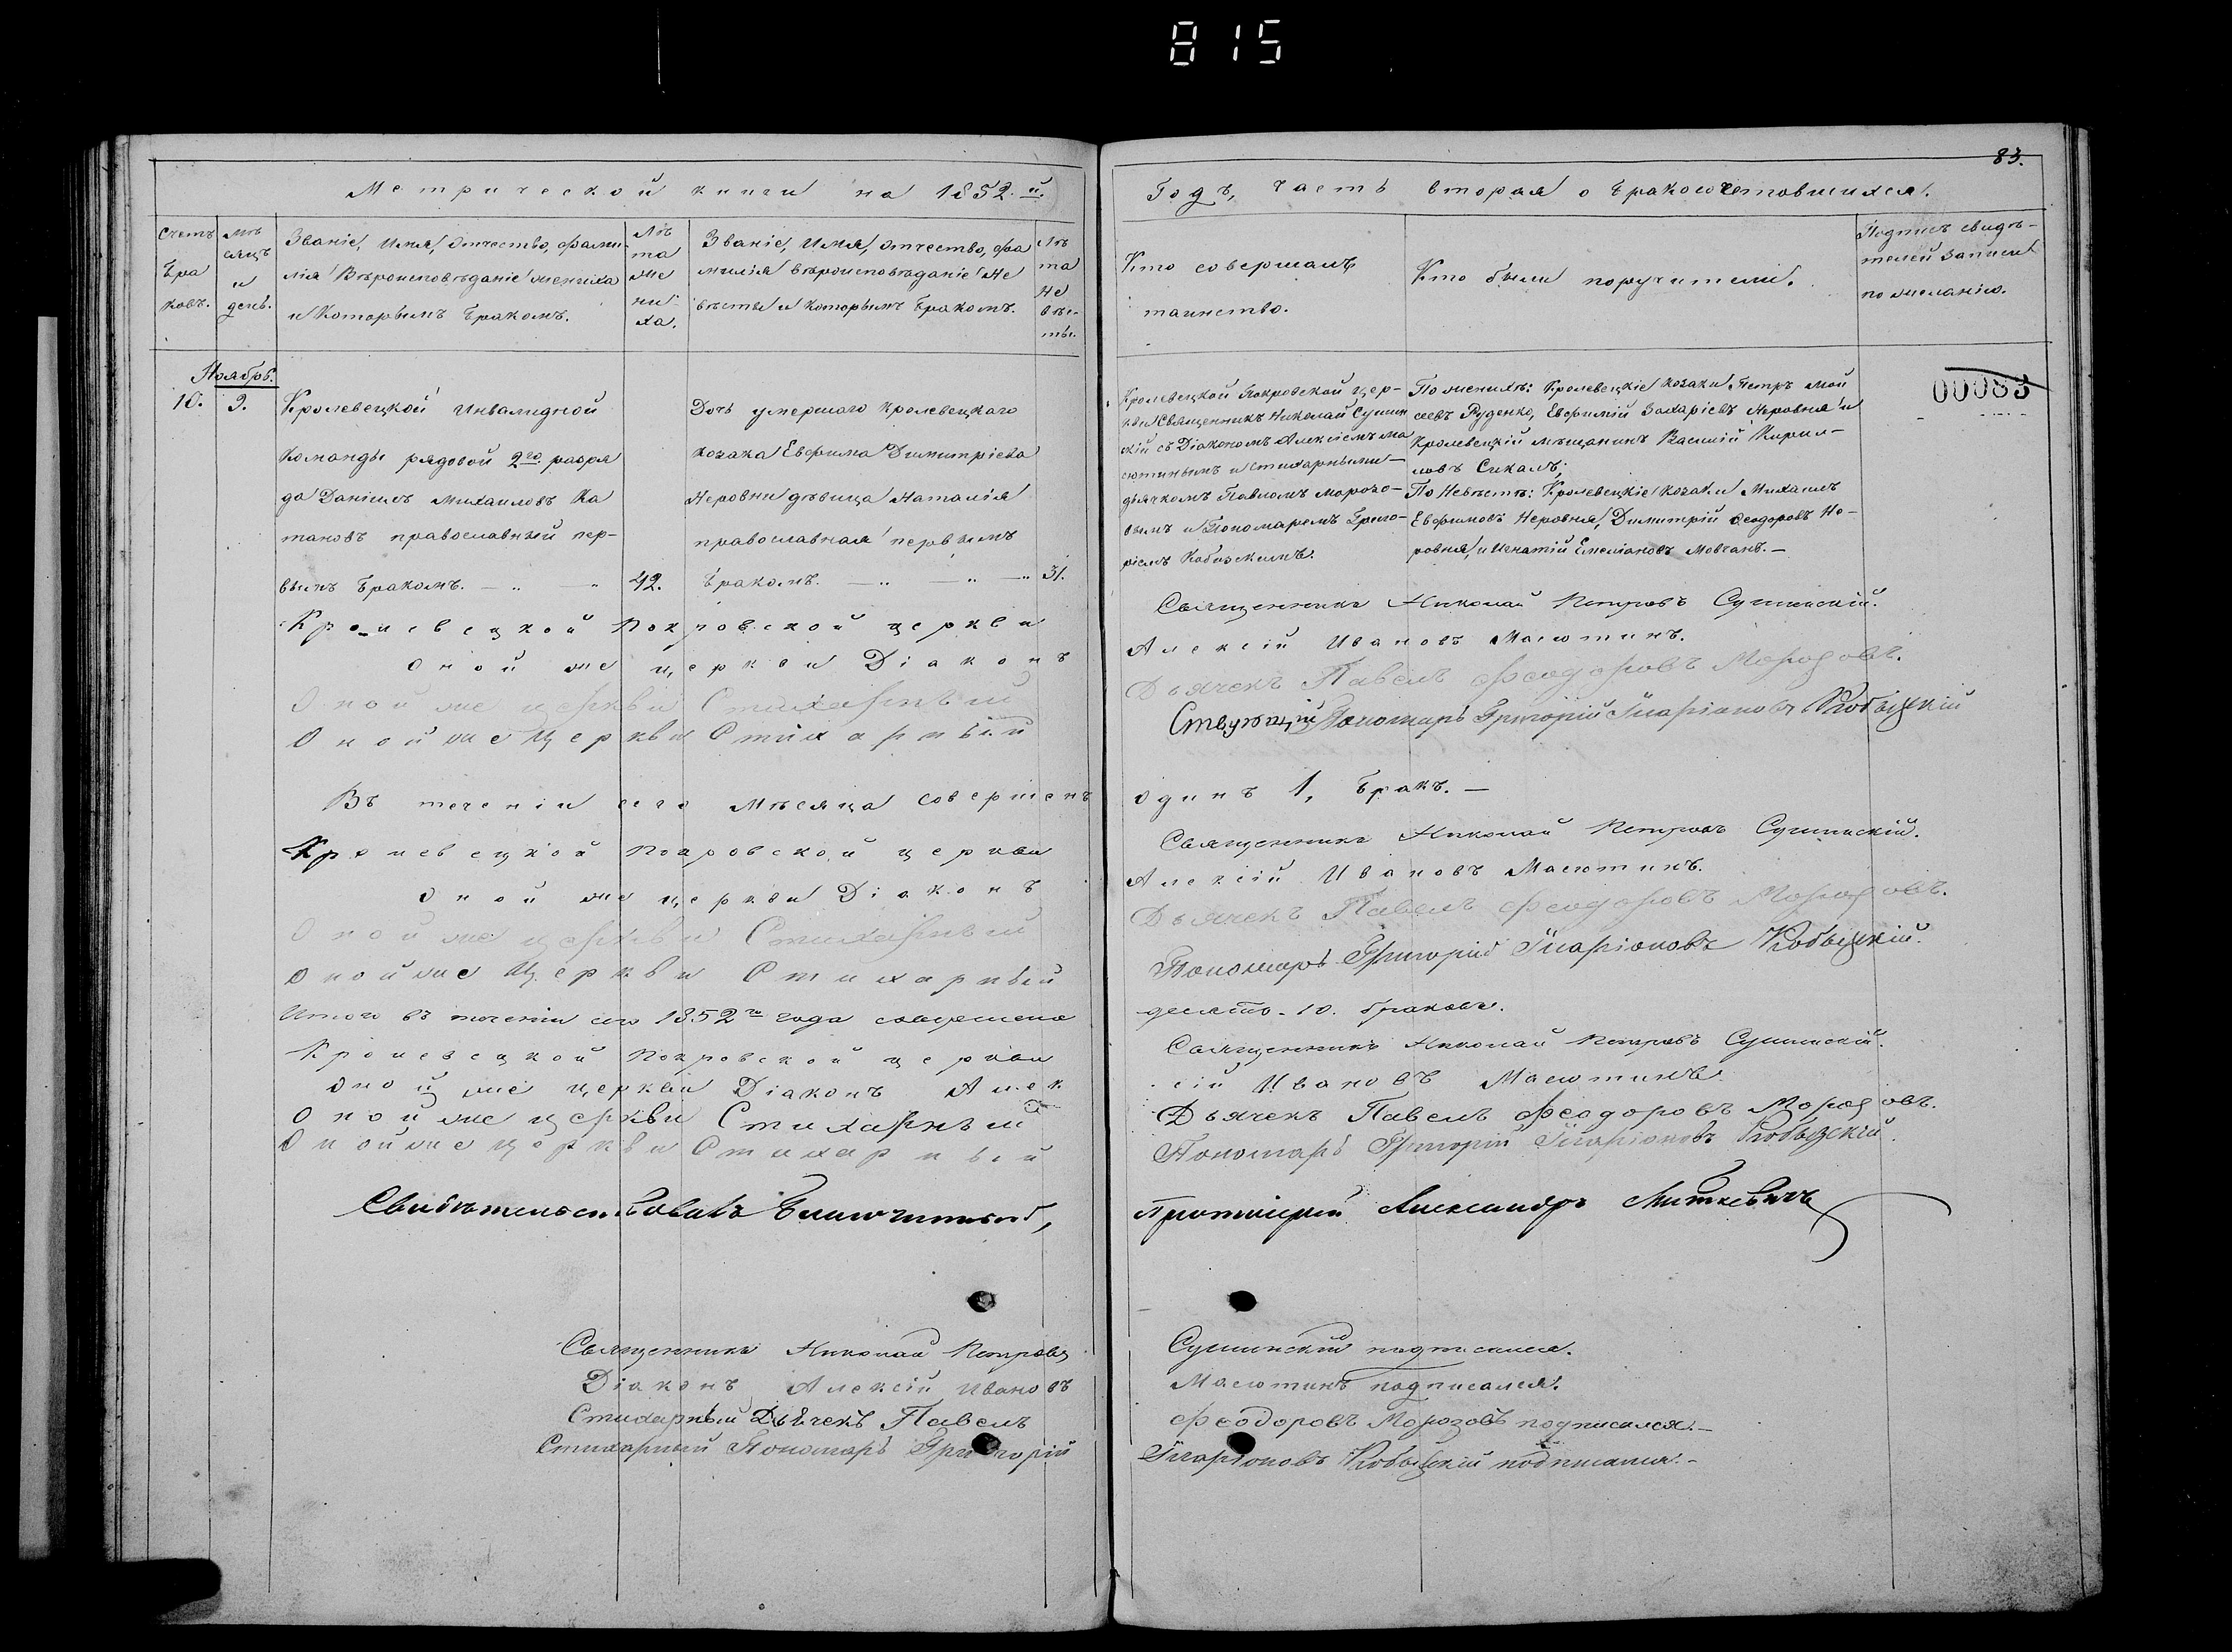 815
83.
Метрической книги на 1852.й
Годъ, часть вторая о бракосочетовшихся.
Счетъ браковъ.
Мѣсяцъ и день.
Званіе, Имя, отчество, фамилія Вѣроисповѣданіе жениха и Которымъ бракомъ.
Лѣта жениха.
Званіе, Имя, отчество, фамилія вѣроисповѣданіе невѣсты и которымъ бракомъ.
Лѣта невѣсты.
Кто совершалъ таинство.
Кто были поручители.
Подпись свидѣтелей записи по желанію.
00083
Ноябрь.
10. 9.
Кролевецкой Инвалидной
Команды рядовой 2го разря
да Даніилъ Михаиловъ Ка
тановъ православный пер-
вымъ бракомъ. — " — " 42.
Дочь умершаго кролевецкаго
козака Евфима Димитріева
Неровни дѣвица Наталія
православная первымъ
бракомъ. — " — " — " 31.
Кролевецкой Покровской цер-
кви Священникъ Николай Сушин
скій съ Діакономъ Алексіемъ Ма
сютинымъ и стихарными
дьячкомъ Павломъ Морозо-
вымъ и Пономаремъ Григо-
ріемъ Кобызскимъ.
По женихѣ: Кролевецкіе козаки Петръ Мой
сеевъ Руденко, Евфимій Захаріевъ Неровня и
Кролевецкій мѣщанинъ Василій Кирил-
ловъ Сикалъ;
По Невѣстѣ: Кролевецкіе козаки Михаилъ
Евфимовъ Неровня, Димитрій Феодоровъ Не-
ровня, и Игнатій Емеліановъ Мовчанъ. —
Кролевецкой Покровской церкви Священникъ Николай Петровъ Сушинскій.
Оной же церкви Діаконъ Алексій Ивановъ Масютинъ.
Оной же церкви Стихарный Дьячекъ Павелъ Феодоровъ Морозовъ.
Оной же Церкви Стихарный Пономарь Григорій Иларіоновъ Кобызскій
Въ теченіи сего Мѣсяца совершенъ одинъ 1, бракъ. —
Кролевецкой Покровской церкви Священникъ Николай Петровъ Сушинскій.
Оной же церкви Діаконъ Алексій Ивановъ Масютинъ.
Оной же церкви Стихарный Дьячекъ Павелъ Феодоровъ Морозовъ.
Оной же Церкви Стихарный Пономарь Григорій Иларіоновъ Кобызскій.
Итого въ теченіи сего 1852го года совершено десять - 10. браковъ.
Кролевецкой Покровской церкви Священникъ Николай Петровъ Сушинскій.
Оной же церкви Діаконъ Алексій Ивановъ Масютинъ
Оной же церкви Стихарный Дьячекъ Павелъ Феодоровъ Морозовъ.
Оной же церкви Стихарный Пономарь Григорій Иларіоновъ Кобызскій.
Свидѣтельствовалъ Благочинный, Протоіерей Александръ Миткевичъ
Священникъ Николай Петровъ Сушинскій подписался.
Діаконъ Алексій Ивановъ Масютинъ подписался.
Стихарный Дьячекъ Павелъ Феодоровъ Морозовъ подписался. —
Стихарный Пономарь Григорій Иларіоновъ Кобызскій подписался. —